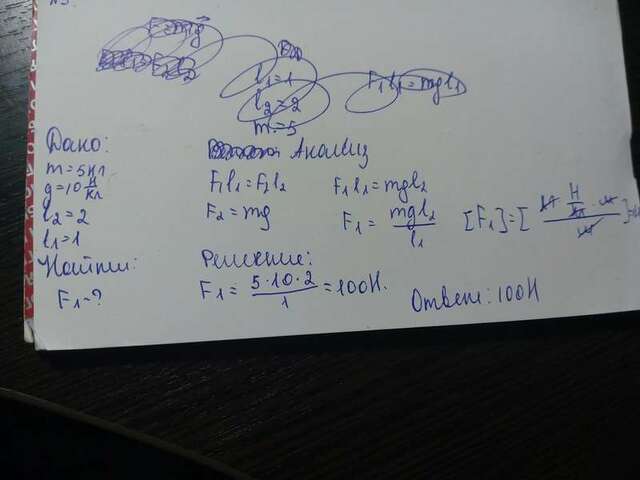 F=mg
l₁=1
l₂=2
m=5
F₁l₁=mgl₁
Дано:
m=5кг
g=10 Н/кг
l₂=2
l₁=1
Найти:
F₁-?
Анализ
F₁l₁=F₂l₂
F₂=mg
F₁l₁=mgl₂
F₁ = mgl₂/l₁
[F₁]=[кг·Н/кг·м/м]=
Решение:
F₁ = 5·10·2/1 = 100Н.
Ответ: 100Н